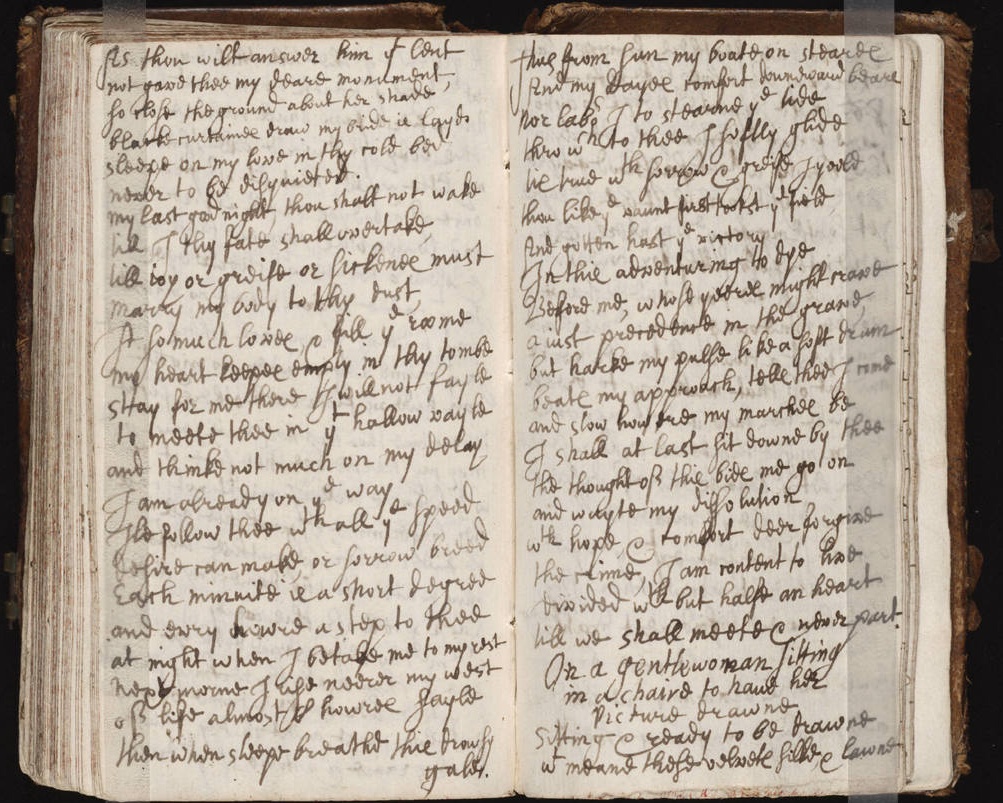 As thou wilt answer him yt lent
not gave thee my deare monument,
so close the ground about her shade,
blacke curtaines draw my bride is layd.
sleepe on my love in thy cold bed
never to be disquieted.
my last good night thou shalt not wake
till I thy fate shall overtake,
till age or greife or sicknes must
marry my body to thy dust,
It so much loves, & fill ye roome
my heart keepes empty in thy tombe
stay for me there I will not fayle
to meete thee in yt hallow vayle
and thinke not much on my delay
I am already on ye way
Ile follow thee wth all ye speed
Desire can make, or sorrow breed
Each minuite is a short degree
and evry howre a step to thee
at night when I betake me to my rest
next morne I rise neerer my west
of life almost howres sayle
then when sleepe breathd this drowsy
gale.
thus from sun my boate on steares
And my dayes comfort downward beare
Nor labr I to stearne ye tide
thro wch to thee I softly glide
tis true wth sorrow & greife I yeeld
thou like ye vaunt first tookst ye field,
And gotten hast ye victory
In this adventuring to dye
Before me, whose yeeres might crave
a just precedence in the grave
but harke my pulse like a soft drum
beates my approach, tells thee I come
and slow howere my marches be
I shall at last sit downe by thee
the thought off this bids me go on
and wayte my dissolution
wth hope & comfort deer forgive
the crime, I am content to live
divided wth but halfe an heart
till we shall meete & never part.
On a gentlewoman sitting
in a chaire to have her
Picture drawne
Sitting & ready to be drawne
wt meane these velvets silks & lawne